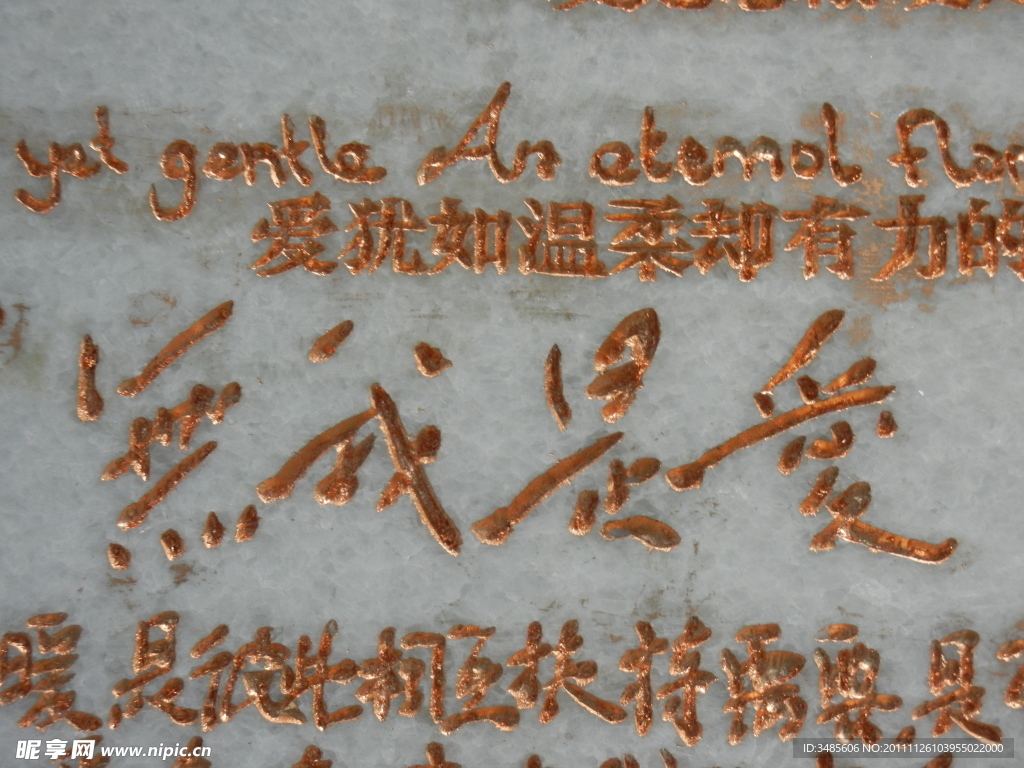 yet gentle An eternal
爱犹如温柔却有力的
無我是愛
暖 是彼此相互扶持 需要 是
昵享网 www.nipic.cn
ID:3485606 NO:20111126103955022000